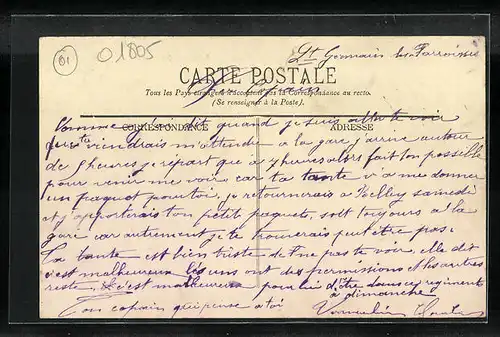 01
01805
St Germain les Paroisses
CARTE POSTALE
Tous les Pays étrangers n'acceptent pas la Correspondance au recto.
(Se renseigner à la Poste).
CORRESPONDANCE
ADRESSE
Comme je dit quand je suis te voir
que tu viendrais m'attendre à la gare j'arrive autour
de 5 heures je repart que a 7 heures alors fait ton possible
pour venir me voir car ta tante v'a me donner
un paquet pour toi, je retournerais à Belley samedi
et j'apporterais ton petit paquet, soit toujours à la
gare car autrement je te trouverais peut être pas.
Ta tante est bien triste de ne pas te voir, elle dit
c'est malheureux les uns ont des permissions et les autres
reste. c'est malheureux pour lui d'être dans ce regiment
à dimanche
Ton copain qui pense a toi